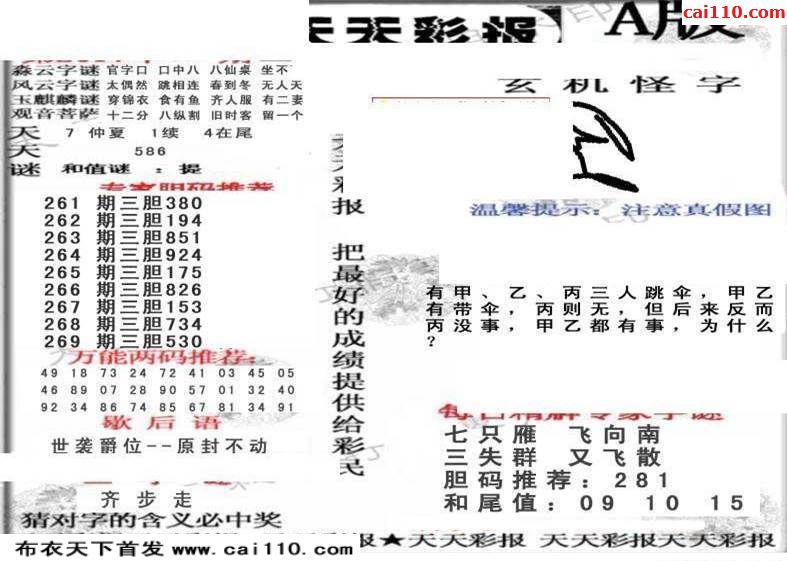 cai110.com
天天彩报 A版
森云字谜 官字口 口中八 八仙桌 坐不
风云字谜 太偶然 跳相连 春到冬 无人天
玉麒麟谜 穿锦衣 食有鱼 齐人服 有二妻
观音菩萨 十二分 八纵割 旧时客 留一个
天 7 仲夏 1续 4在尾
天 586
谜 和值谜 : 提
专家胆码推荐
261 期三胆380
262 期三胆194
263 期三胆851
264 期三胆924
265 期三胆175
266 期三胆826
267 期三胆153
268 期三胆734
269 期三胆530
万能两码推荐:
49 18 73 24 72 41 03 45 05
46 89 07 28 90 57 01 32 40
92 34 86 74 85 67 81 34 91
歇后语
世袭爵位--原封不动
齐步走
猜对字的含义必中奖
布衣天下首发 www.cai110.com
彩报 把最好的成绩提供给彩民
玄机怪字
温馨提示: 注意真假图
有甲、乙、丙三人跳伞，甲乙
有带伞，丙则无，但后来反而
丙没事，甲乙都有事，为什么
?
每日精解专家字谜
七只雁 飞向南
三失群 又飞散
胆码推荐: 281
和尾值: 09 10 15
报★天天彩报 天天彩报天天彩报